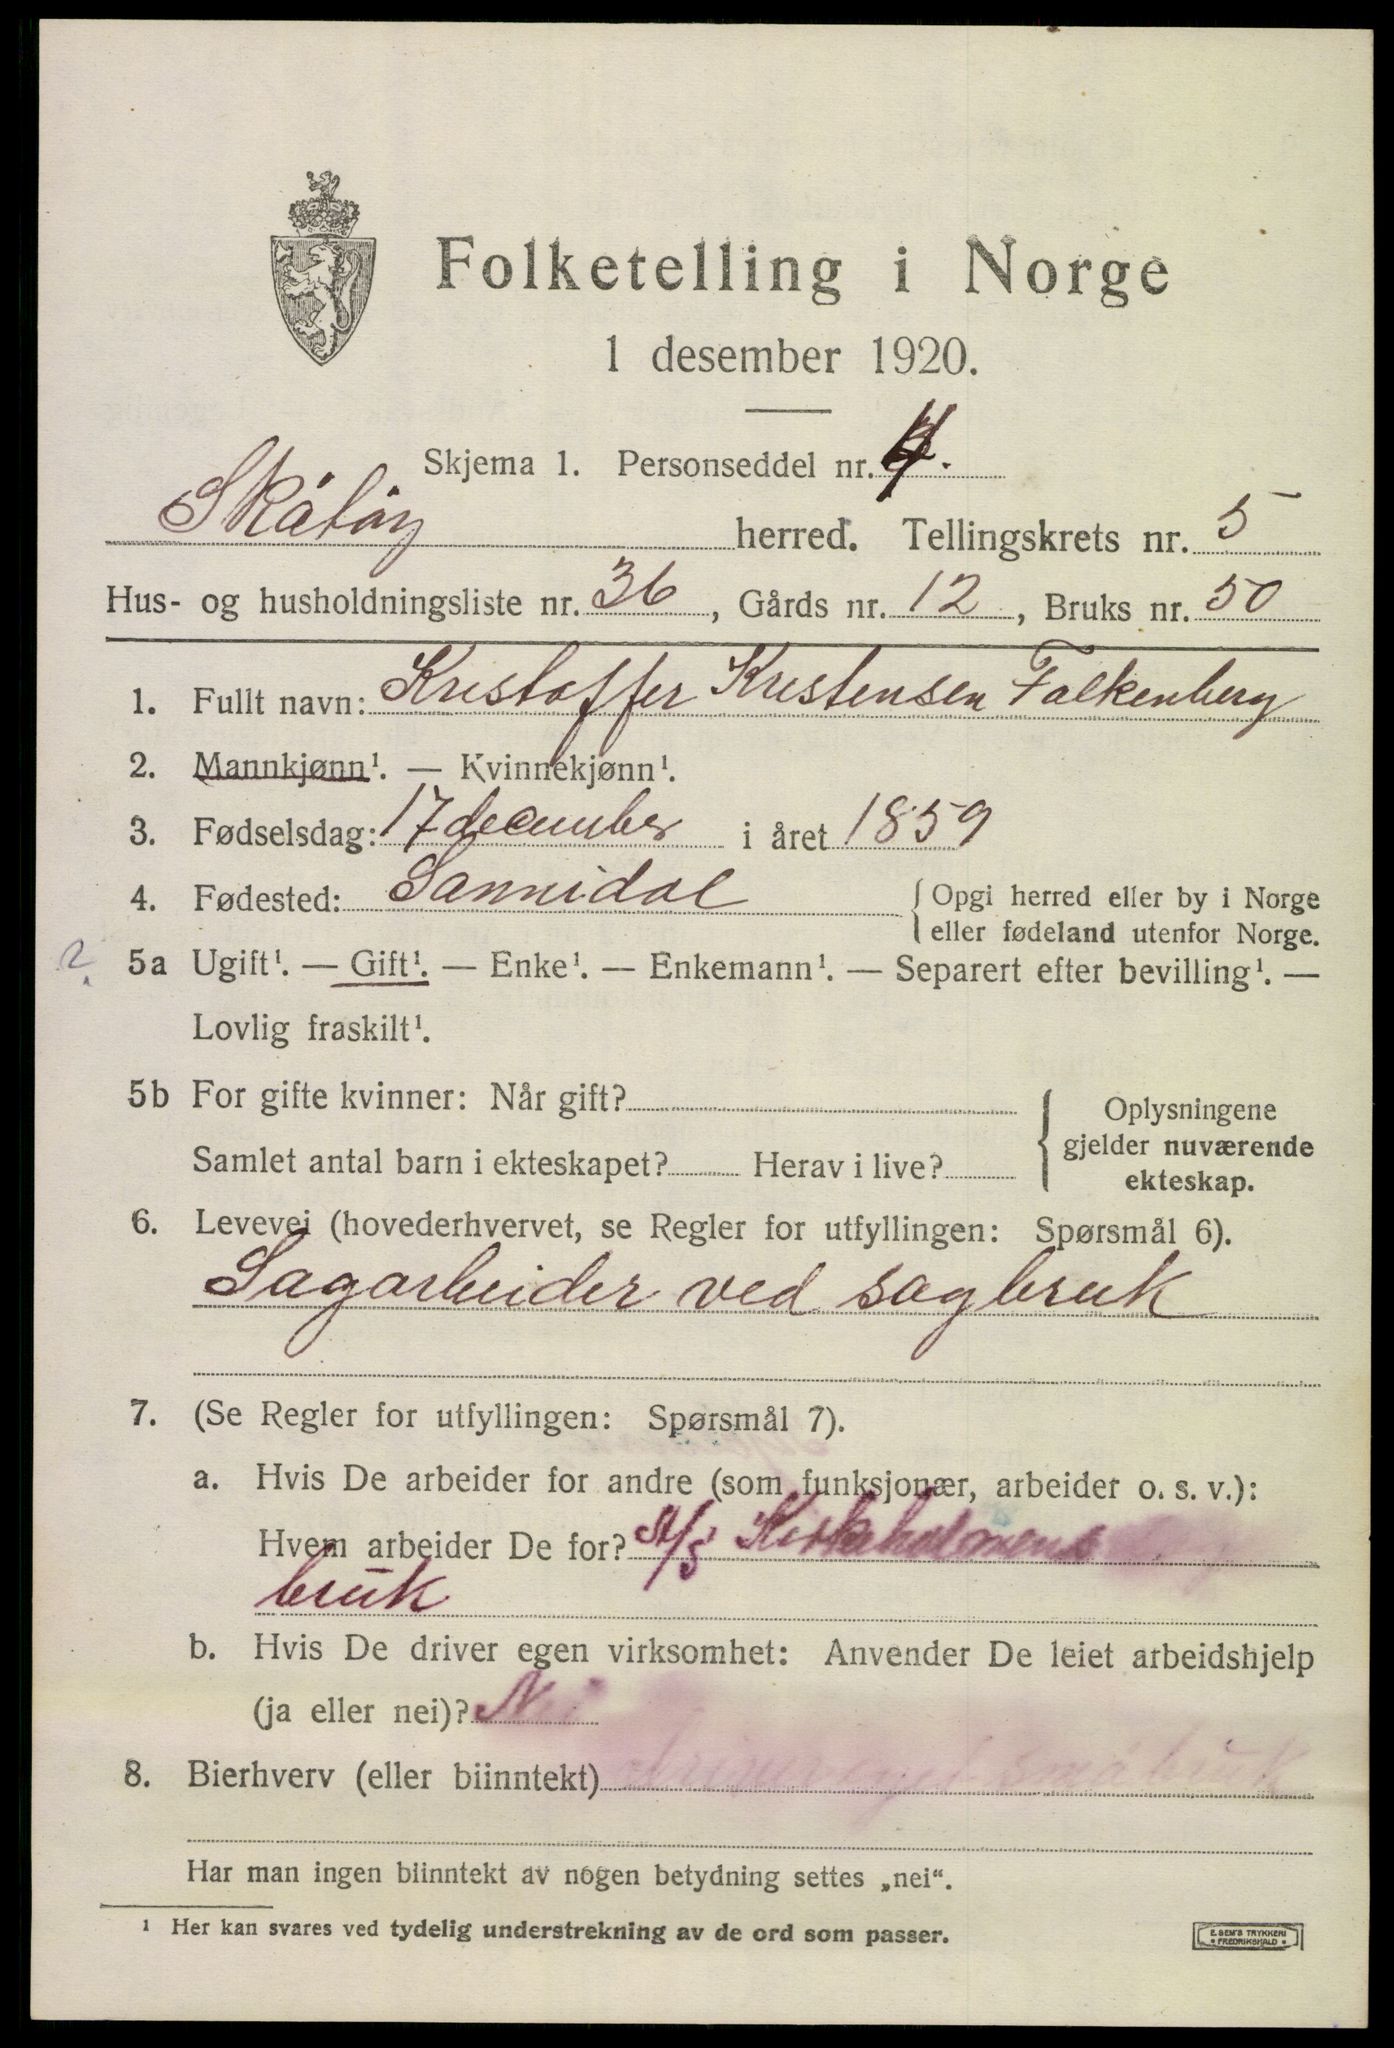 Folketelling i Norge
1 desember 1920.
Skjema 1. Personseddel nr. 4.
Skåtøy herred. Tellingskrets nr. 5
Hus- og husholdningsliste nr. 36, Gårds nr. 12, Bruks nr. 50
1. Fullt navn: Kristoffer Kristensen Falkenberg
2. Mannkjønn¹. — Kvinnekjønn¹.
3. Fødselsdag: 17 december i året 1859
4. Fødested: Sannidal { Opgi herred eller by i Norge
eller fødeland utenfor Norge.
2. 5a Ugift¹. — Gift¹. — Enke¹. — Enkemann¹. — Separert efter bevilling¹. —
Lovlig fraskilt¹.
5b For gifte kvinner: Når gift?
Samlet antal barn i ekteskapet? Herav i live?
{ Oplysningene
gjelder nuværende
ekteskap.
6. Levevei (hovederhvervet, se Regler for utfyllingen: Spørsmål 6).
Sagarbeider ved sagbruk
7. (Se Regler for utfyllingen: Spørsmål 7).
a. Hvis De arbeider for andre (som funksjonær, arbeider o. s. v.):
Hvem arbeider De for? A/S Kirkeholmens
bruk
b. Hvis De driver egen virksomhet: Anvender De leiet arbeidshjelp
(ja eller nei)? Nei
8. Bierhverv (eller biinntekt) småbruk
Har man ingen biinntekt av nogen betydning settes „nei“.
¹ Her kan svares ved tydelig understrekning av de ord som passer.
E. SEM'S TRYKKERI
• FREDRIKSHALD •